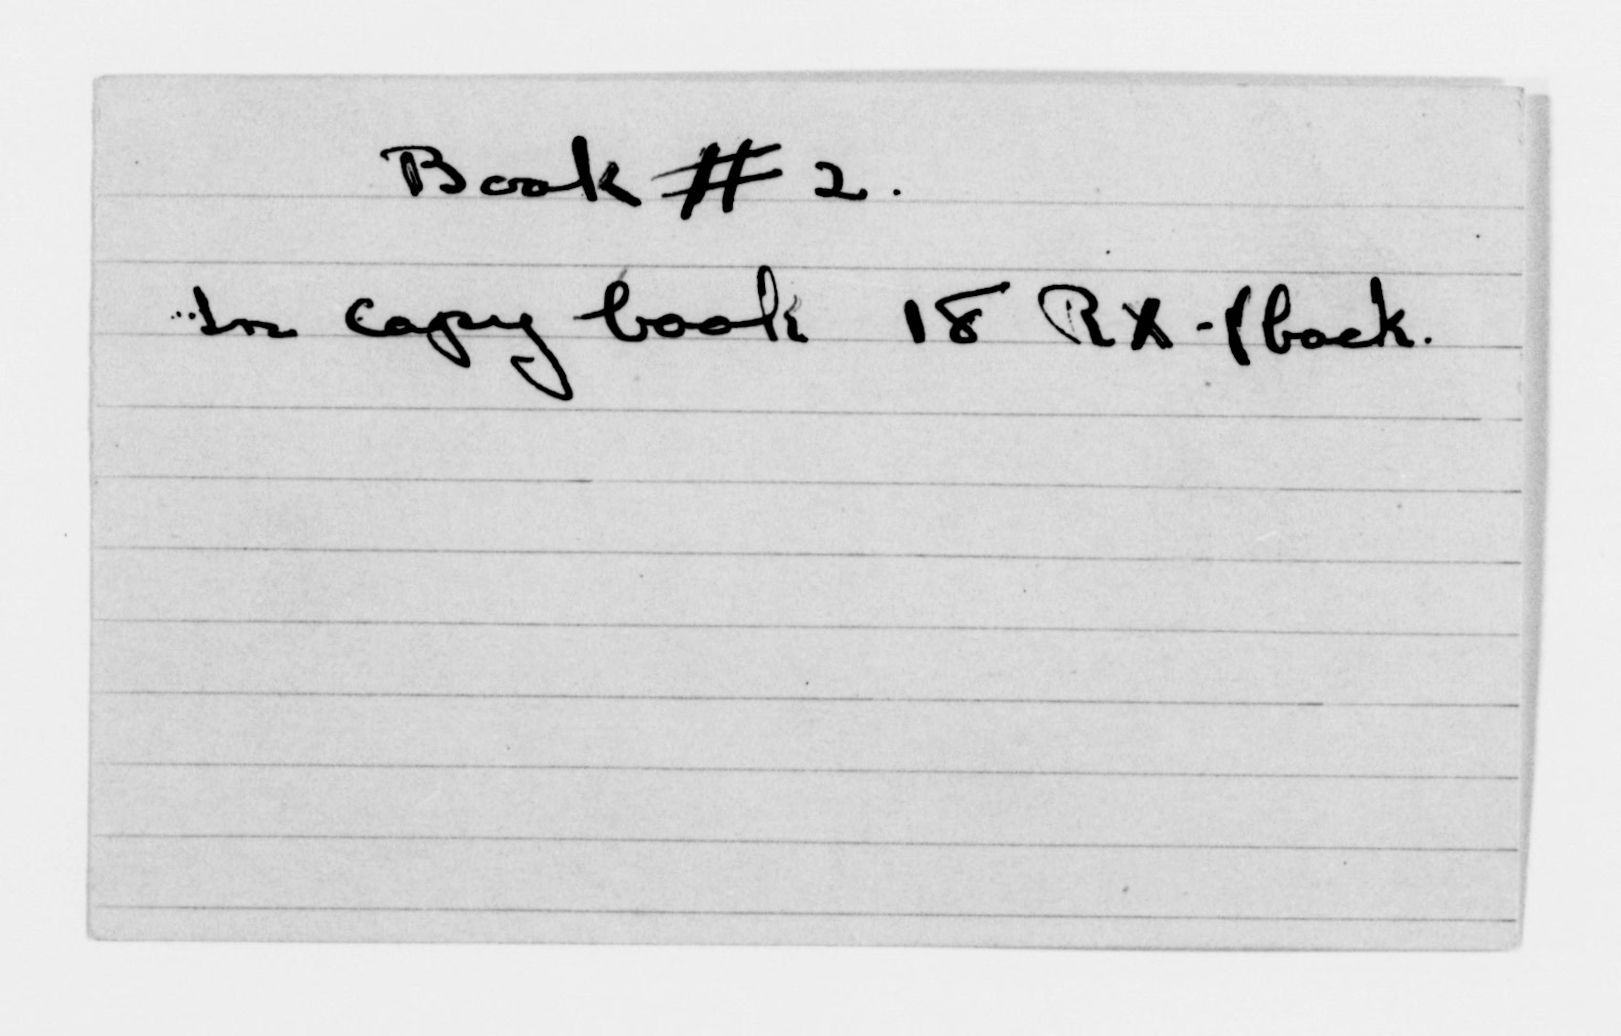 Book # 2.
In copy book 18 RX - back.